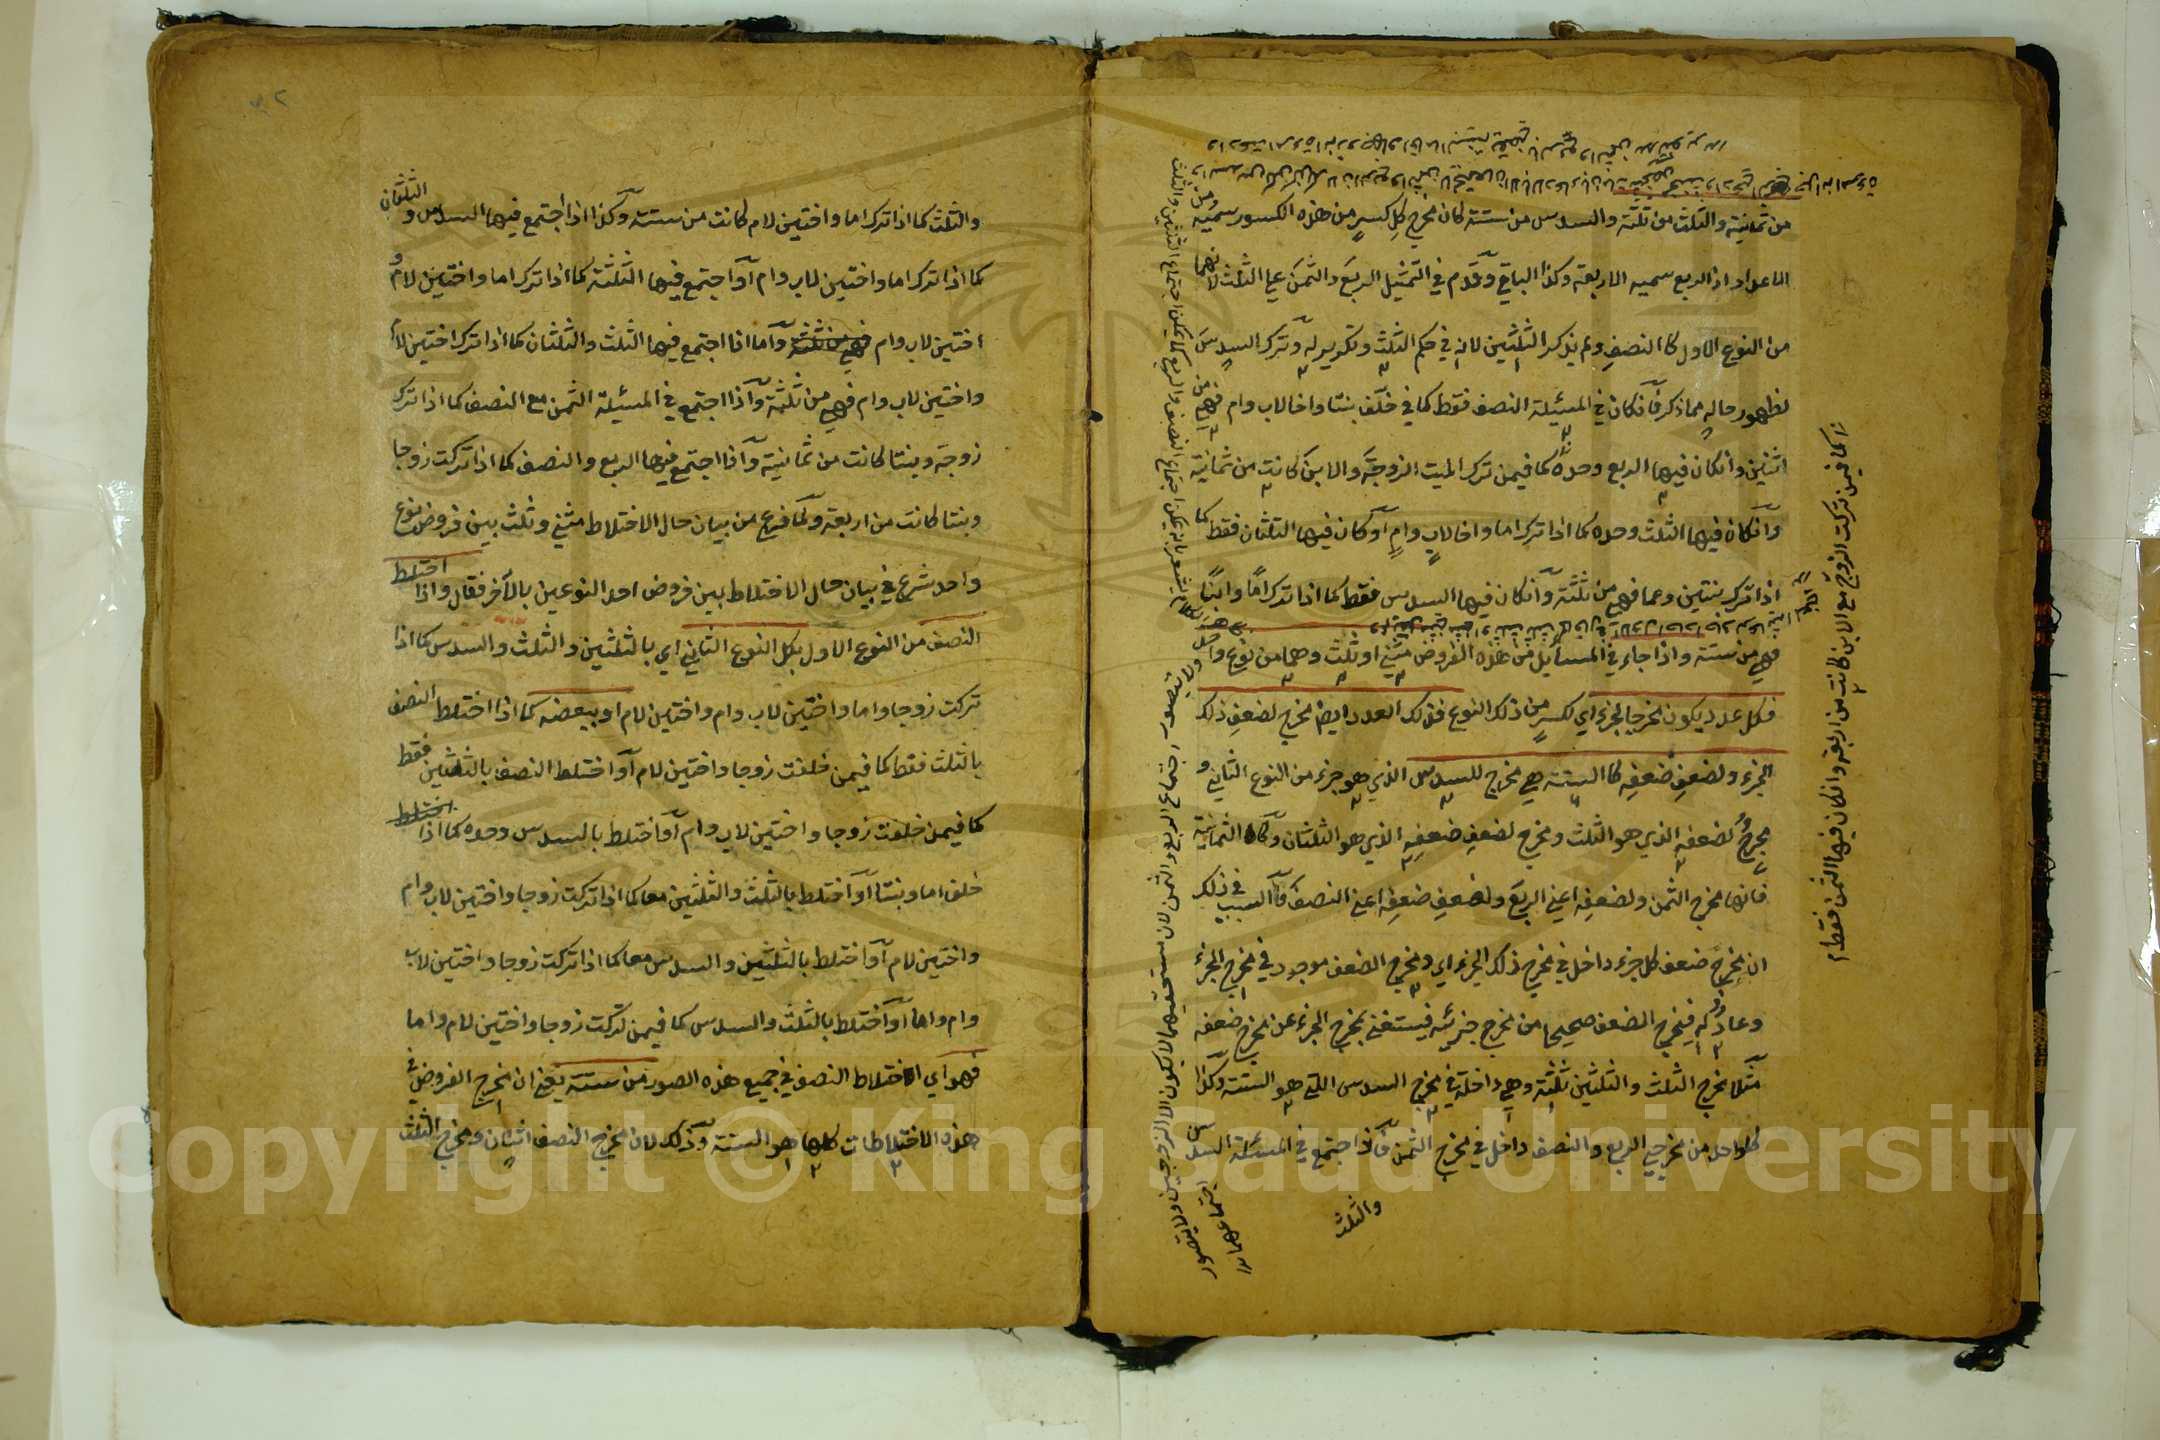 من ثمانية والثلث من ثلثة والسدس من ستة كان مخرج كل كسر من هذه الكسور سميه
الاعداد اذ الربع سميه الاربعة وكذا البواقي وقدم في التمثيل الربع والثمن علي الثلث لانهما
من النوع الاول كالنصف ولم يذكر الثلثين لانه في حكم الثلث وتكرير له وترك السدس
لظهور حاله مما ذكر فان كان في المسئلة النصف فقط كما في خلف بنتا واخا لاب وام فهي من
اثنين وان كان فيها الربع وحده كما فيمن ترك الميت الزوجة والابن كانت من ثمانية
وان كان فيها الثلث وحده كما اذا ترك اما واخا لاب وام او كان فيها الثلثان فقط كما
اذا ترك بنتين وعما فهي من ثلثة وان كان فيها السدس فقط كما اذا ترك اما وابنا
فهي من ستة واذا جاء في المسايل من هذه الفروض مثني او ثلث وهما من نوع واحد
فكل عدد يكون مخرجا لجزء اي لكسر من ذلك النوع فذلك العدد ايضا مخرج لضعف ذلك
الجزء ولضعف ضعفه كالستة هي مخرج للسدس الذي هو جزء من النوع الثاني و
مخرج لضعفه الذي هو الثلث ومخرج لضعف ضعفه الذي هو الثلثان وكالثمانية
فانها مخرج الثمن ولضعفه اعني الربع ولضعف ضعفه اعني النصف والسبب في ذلك
ان مخرج ضعف كل جزء داخل في مخرج ذلك الجزء اي ومخرج الضعف موجود في مخرج الجزء
فمخرج الضعف صحيحا من مخرج جزئه فيستغني بمخرج الجزء عن مخرج ضعفه
مثلا مخرج الثلث والثلثين ثلثة وهي داخلة في مخرج السدس التي هو الستة وكذا
كل واحد من مخرجي الربع والنصف داخل في مخرج الثمن فاذا اجتمع في المسئلة السدس
والثلث
كما فيمن تركت الزوج مع الابن كانت من اربعة وان كان فيها الثمن فقط
ولا يتصور اجتماع الربع والثمن لان مستحقيهما لا يكون الا الزوجين ولا يتصور
اجتماعهما
والثلث كما اذا ترك اما واختين لام كانت من ستة وكذا اذا اجتمع فيها السدس والثلثان
كما اذا ترك اما واختين لاب وام او اجتمع فيها الثلثة كما اذا ترك اما واختين لام و
اختين لاب وام واما اذا اجتمع فيها الثلث والثلثان كما اذا ترك اختين لام
واختين لاب وام فهي من ثلثة واذا اجتمع في المسئلة الثمن مع النصف كما اذا ترك
زوجة وبنتا كانت من ثمانية واذا اجتمع فيها الربع والنصف كما اذا تركت زوجا
وبنتا كانت من اربعة ولما فرغ من بيان حال الاختلاط مثني وثلث بين فروض نوع
واحد شرع في بيان حال الاختلاط بين فروض احد النوعين بالاخر فقال واذا اختلط
النصف من النوع الاول بكل النوع الثاني اي بالثلثين والثلث والسدس كما اذا
تركت زوجا واما واختين لاب وام واختين لام او ببعضه كما اذا اختلط النصف
بالثلث فقط كما فيمن خلفت زوجا واختين لام او اختلط النصف بالثلثين فقط
كما فيمن خلفت زوجا واختين لاب وام او اختلط بالسدس وحده كما اذا
خلف اما وبنتا او اختلط بالثلث والثلثين معا كما اذا تركت زوجا واختين لاب وام
واختين لام او اختلط بالثلثين والسدس معا كما اذا تركت زوجا واختين لاب
وام واما او اختلط بالثلث والسدس كما فيمن تركت زوجا واختين لام واما
فهو اي اختلاط النصف في جميع هذه الصور من ستة يعني ان مخرج الفروض في
هذه الاختلاطات كلها هو الستة وذلك لان مخرج النصف اثنان ومخرج الثلث
Copyright © King Saud University